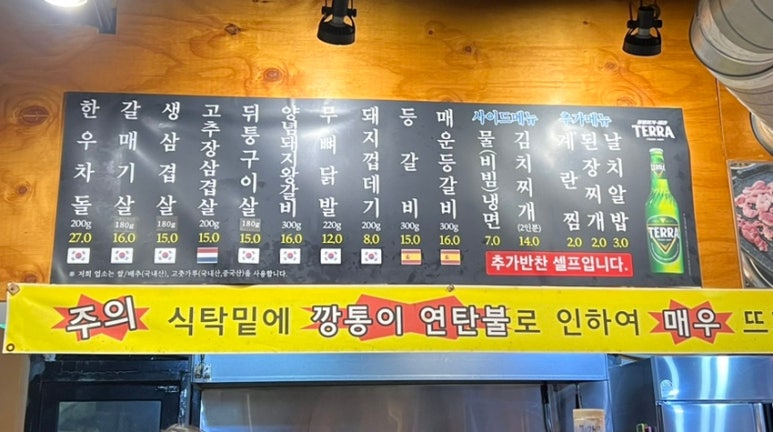 한우차돌
200g
27.0
갈매기살
180g
16.0
생삼겹살
180g
15.0
고추장삼겹살
200g
15.0
뒤통구이살
180g
15.0
양념돼지왕갈비
300g
16.0
무뼈닭발
220g
12.0
돼지껍데기
200g
8.0
등갈비
300g
15.0
매운등갈비
300g
16.0
사이드메뉴
물(비빔)냉면
7.0
김치찌개
(2인분)
14.0
추가메뉴
계란찜
2.0
된장찌개
2.0
날치알밥
3.0
TERRA
TERRA
추가반찬 셀프입니다.
※ 저희 업소는 쌀/배추(국내산), 고춧가루(국내산,중국산)을 사용합니다.
주의 식탁밑에 깡통이 연탄불로 인하여 매우 뜨